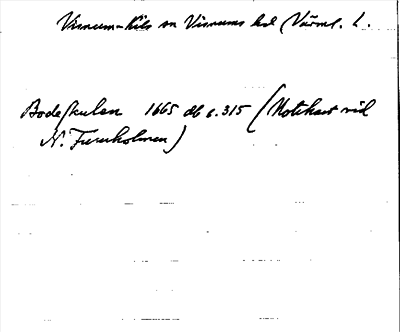 Visnum-Kils sn Visnums hd (Värml. l.
Bodeskulen 1665 db s. 315 (Notkast vid
N. Furuholmen)